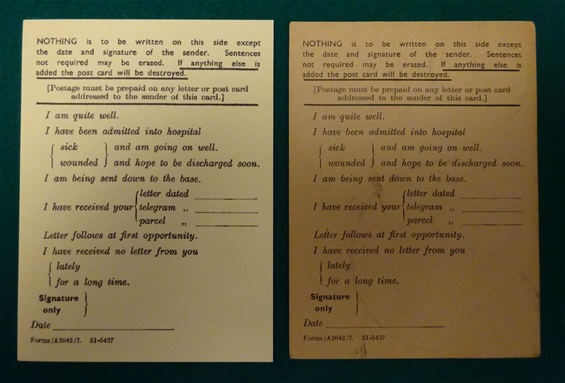 NOTHING is to be written on this side except
the date and signature of the sender. Sentences
not required may be erased. If anything else is
added the post card will be destroyed.
[Postage must be prepaid on any letter or post card
addressed to the sender of this card.]
I am quite well.
I have been admitted into hospital
{ sick } and am going on well.
{ wounded } and hope to be discharged soon.
I am being sent down to the base.
{ letter dated
I have received your { telegram „
{ parcel „
Letter follows at first opportunity.
I have received no letter from you
{ lately
{ for a long time.
Signature
only }
Date
Forms/A2042/7. 51-5437
NOTHING is to be written on this side except
the date and signature of the sender. Sentences
not required may be erased. If anything else is
added the post card will be destroyed.
[Postage must be prepaid on any letter or post card
addressed to the sender of this card.]
I am quite well.
I have been admitted into hospital
{ sick } and am going on well.
{ wounded } and hope to be discharged soon.
I am being sent down to the base.
{ letter dated
I have received your { telegram „
{ parcel „
Letter follows at first opportunity.
I have received no letter from you
{ lately
{ for a long time.
Signature
only }
Date
Forms/A2042/7. 51-5437